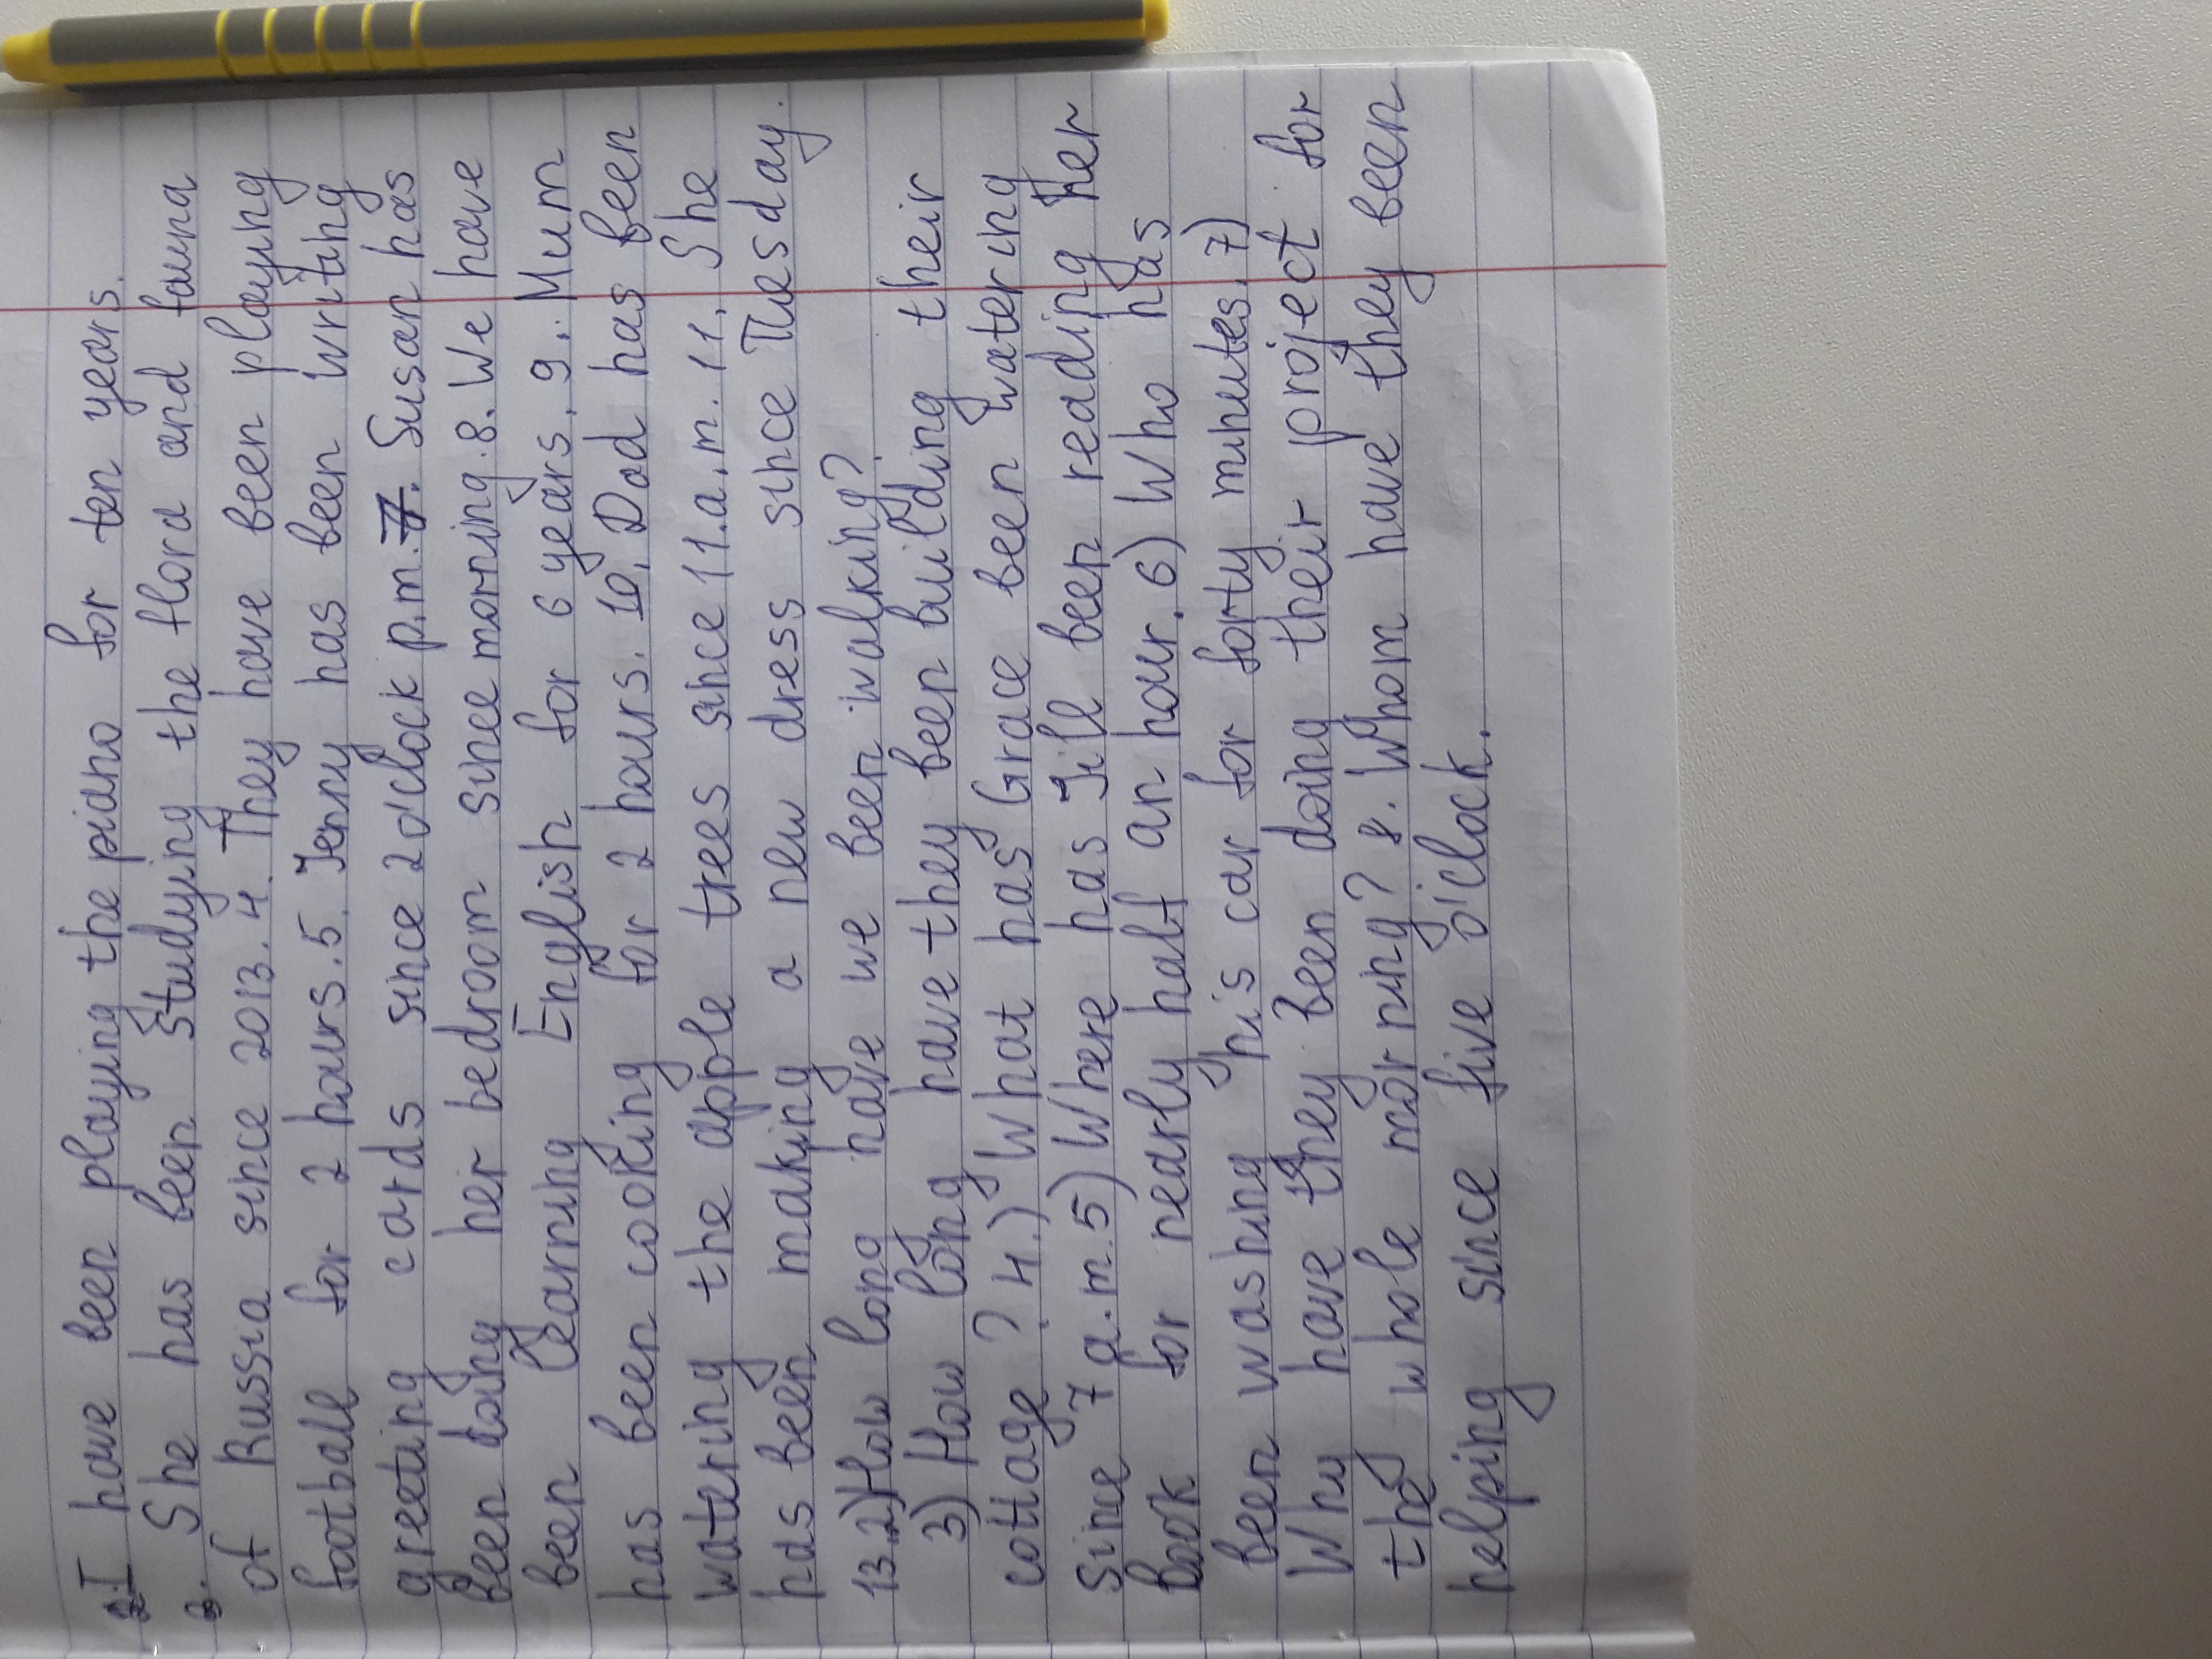 2. I have been playing the piano for ten years.
3. She has been studying the flora and fauna
of Russia since 2013. 4. They have been playing
football for 2 hours. 5. Jenny has been writing
greeting cards since 2 o'clock p.m. 7. Susan has
been doing her bedroom since morning. 8. We have
been learning English for 6 years. 9. Mum
has been cooking for 2 hours. 10. Dad has been
watering the apple trees since 11.a.m. 11. She
has been making a new dress since Tuesday.
13. 2) How long have we been walking?
3) How long have they been building their
cottage? 4.) What has Grace been watering
since 7 a.m. 5) Where has Jill been reading her
book for nearly half an hour. 6) Who has
been washing his car for forty minutes. 7)
Why have they been doing their project for
the whole morning? 8. Whom have they been
helping since five o'clock.